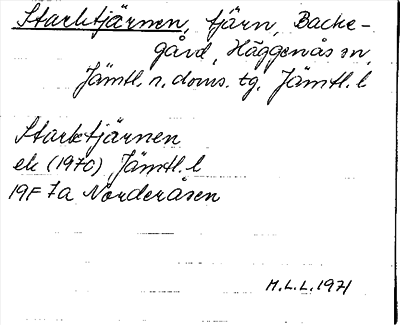 Starktjärnen, tjärn, Backe-
gård, Häggenås sn,
Jämtl. n. doms. tg. Jämtl. l
Starktjärnen
ek (1970), Jämtl. l
19F 7a Norderåsen
M.L.L. 1971